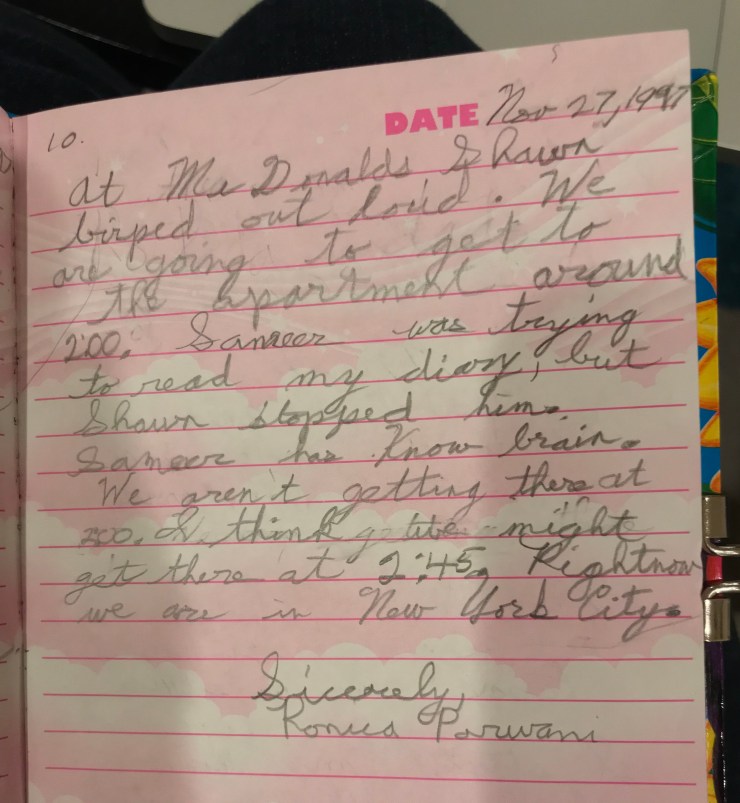 10.
DATE Nov 27, 1997
at MacDonalds Shawn
birped out loud. We
are going to get to
the apartment around
2:00. Sameer was trying
to read my diary, but
Shawn stopped him.
Sameer has Know brain.
We aren't getting there at
200. I think we might
get there at 2:45. Rightnow
we are in New York City.
Sicerely,
Parwani